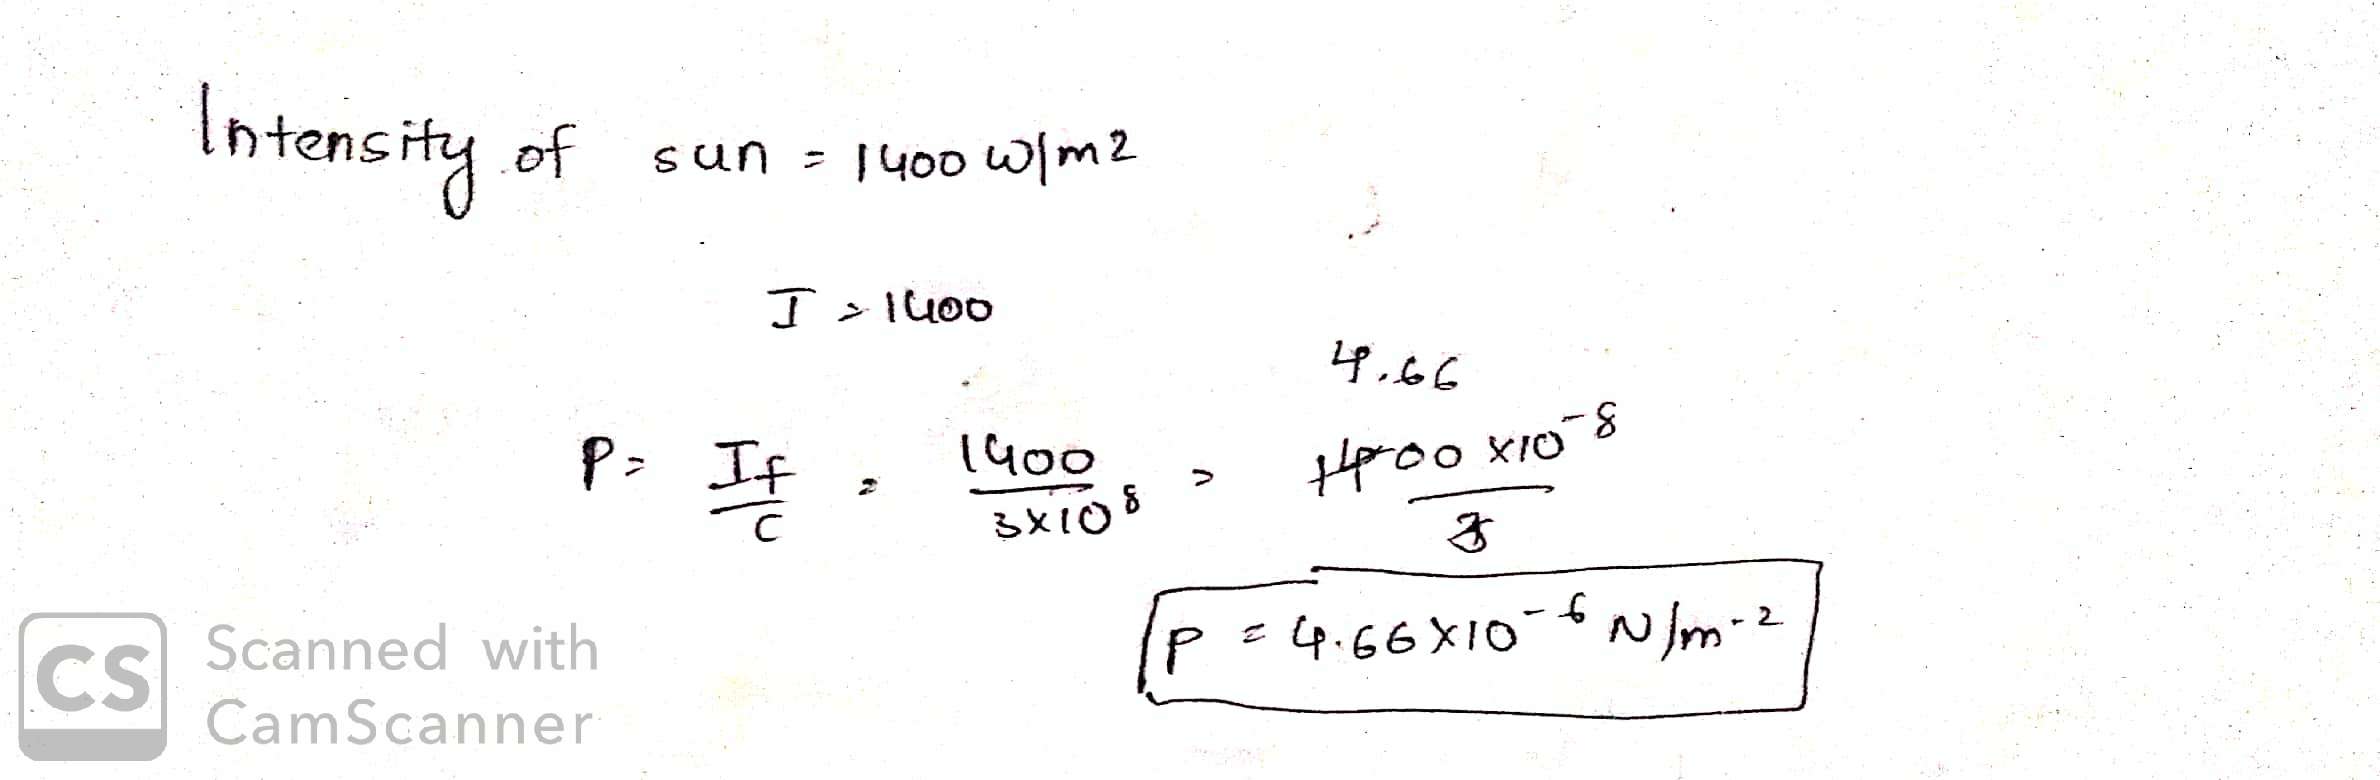 Intensity of sun = 1400 W/m2
I = 1400
P = If/c = 1400/3×10^8 = 1400×10^-8/3
4.66
P = 4.66×10^-6 N/m-2
CS Scanned with
CamScanner